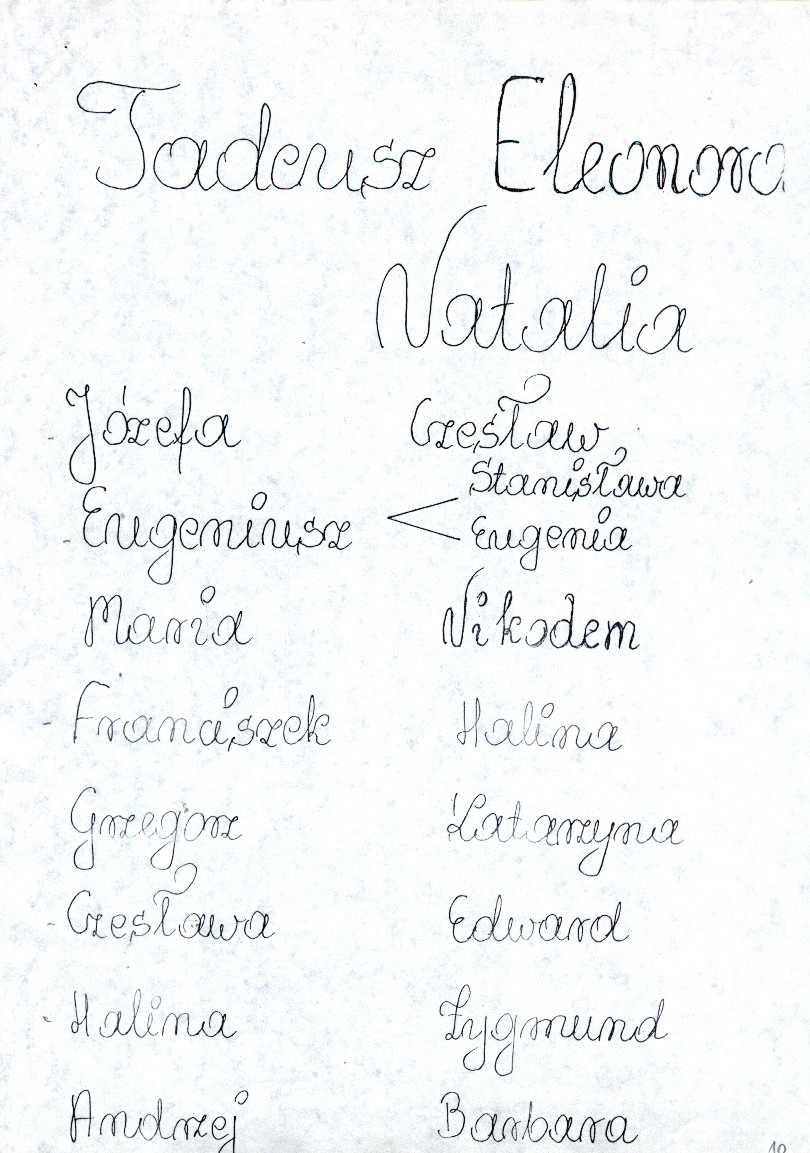 Tadeusz Eleonora
Natalia
- Józefa Czesław
Stanisława
- Eugeniusz < Eugenia
Maria Nikodem
- Franciszek Halina
Grzegorz Katarzyna
- Czesława Edward
- Halina Zygmund
Andrzej Barbara
10